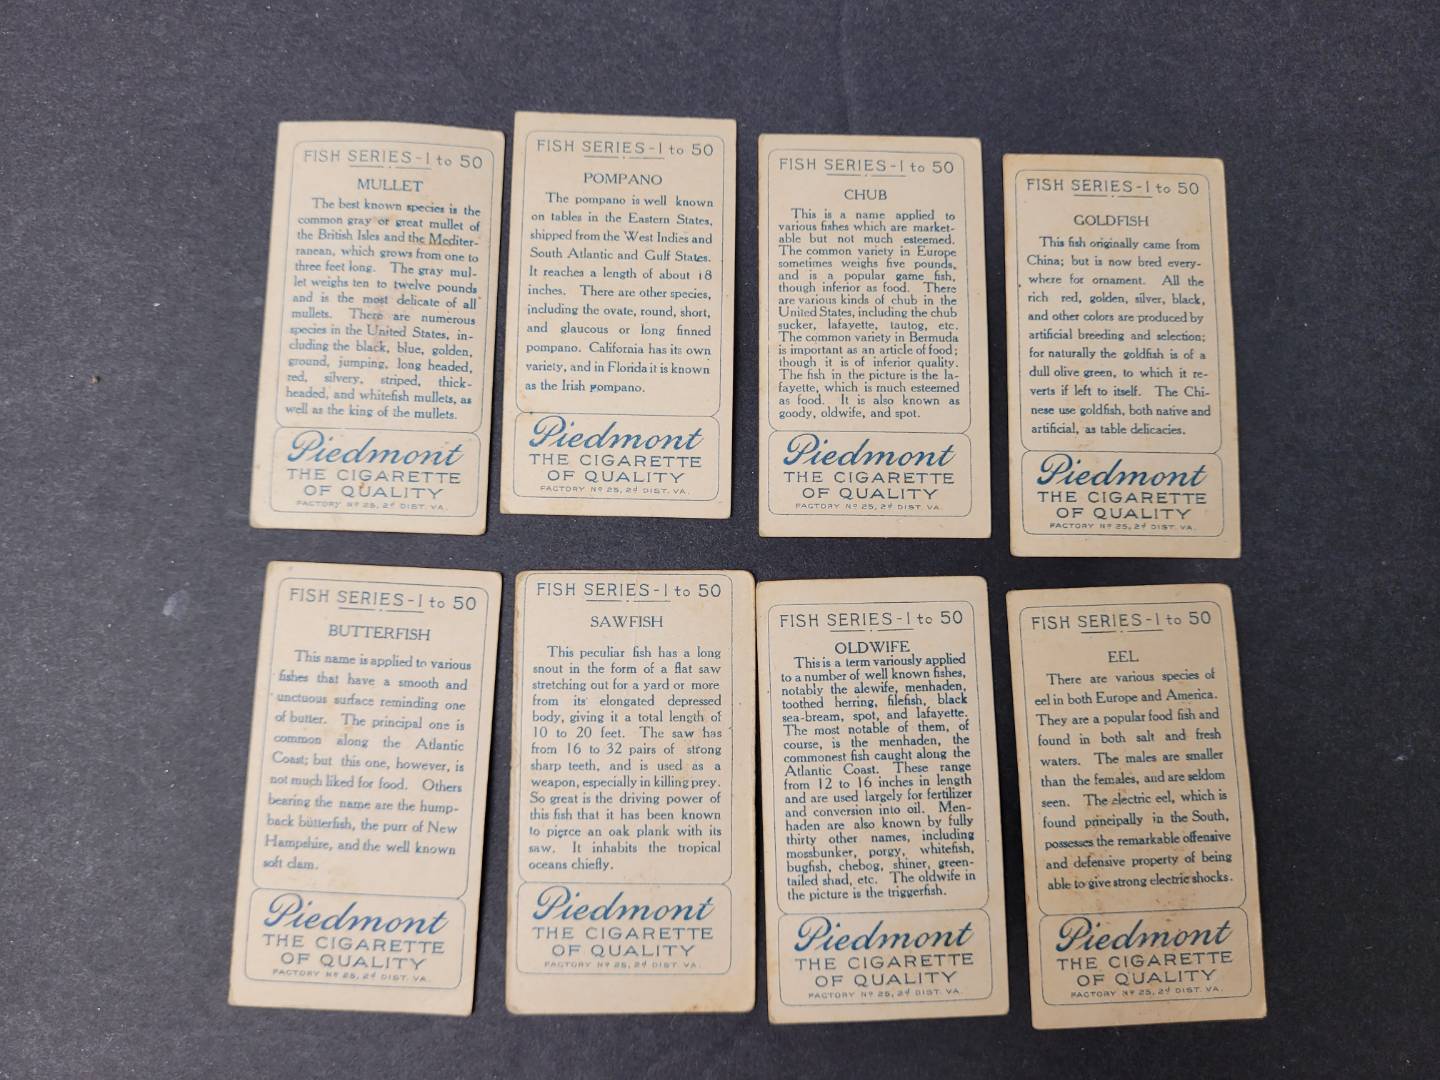 FISH SERIES-1 to 50
MULLET
The best known species is the
common gray or great mullet of
the British Isles and the Mediter-
ranean, which grows from one to
three feet long. The gray mul-
let weighs ten to twelve pounds
and is the most delicate of all
mullets. There are numerous
species in the United States, in-
cluding the black, blue, golden,
ground, jumping, long headed,
red, silvery, striped, thick-
headed, and whitefish mullets, as
well as the king of the mullets.
Piedmont
THE CIGARETTE
OF QUALITY
FACTORY Nº 25, 2d DIST. VA.
FISH SERIES-1 to 50
POMPANO
The pompano is well known
on tables in the Eastern States,
shipped from the West Indies and
South Atlantic and Gulf States.
It reaches a length of about 18
inches. There are other species,
including the ovate, round, short,
and glaucous or long finned
pompano. California has its own
variety, and in Florida it is known
as the Irish pompano.
Piedmont
THE CIGARETTE
OF QUALITY
FACTORY Nº 25, 2d DIST. VA.
FISH SERIES-1 to 50
CHUB
This is a name applied to
various fishes which are market-
able but not much esteemed.
The common variety in Europe
sometimes weighs five pounds,
and is a popular game fish,
though inferior as food. There
are various kinds of chub in the
United States, including the chub
sucker, lafayette, tautog, etc.
The common variety in Bermuda
is important as an article of food;
though it is of inferior quality.
The fish in the picture is the la-
fayette, which is much esteemed
as food. It is also known as
goody, oldwife, and spot.
Piedmont
THE CIGARETTE
OF QUALITY
FACTORY Nº 25, 2d DIST. VA.
FISH SERIES-1 to 50
GOLDFISH
This fish originally came from
China; but is now bred every-
where for ornament. All the
rich red, golden, silver, black,
and other colors are produced by
artificial breeding and selection;
for naturally the goldfish is of a
dull olive green, to which it re-
verts if left to itself. The Chi-
nese use goldfish, both native and
artificial, as table delicacies.
Piedmont
THE CIGARETTE
OF QUALITY
FACTORY Nº 25, 2d DIST. VA.
FISH SERIES-1 to 50
BUTTERFISH
This name is applied to various
fishes that have a smooth and
unctuous surface reminding one
of butter. The principal one is
common along the Atlantic
Coast; but this one, however, is
not much liked for food. Others
bearing the name are the hump-
back butterfish, the purr of New
Hampshire, and the well known
soft clam.
Piedmont
THE CIGARETTE
OF QUALITY
FACTORY Nº 25, 2d DIST. VA.
FISH SERIES-1 to 50
SAWFISH
This peculiar fish has a long
snout in the form of a flat saw
stretching out for a yard or more
from its elongated depressed
body, giving it a total length of
10 to 20 feet. The saw has
from 16 to 32 pairs of strong
sharp teeth, and is used as a
weapon, especially in killing prey.
So great is the driving power of
this fish that it has been known
to pierce an oak plank with its
saw. It inhabits the tropical
oceans chiefly.
Piedmont
THE CIGARETTE
OF QUALITY
FACTORY Nº 25, 2d DIST. VA.
FISH SERIES-1 to 50
OLDWIFE
This is a term variously applied
to a number of well known fishes,
notably the alewife, menhaden,
toothed herring, filefish, black
sea-bream, spot, and lafayette.
The most notable of them, of
course, is the menhaden, the
commonest fish caught along the
Atlantic Coast. These range
from 12 to 16 inches in length
and are used largely for fertilizer
and conversion into oil. Men-
haden are also known by fully
thirty other names, including
mossbunker, porgy, whitefish,
bugfish, chebog, shiner, green-
tailed shad, etc. The oldwife in
the picture is the triggerfish.
Piedmont
THE CIGARETTE
OF QUALITY
FACTORY Nº 25, 2d DIST. VA.
FISH SERIES-1 to 50
EEL
There are various species of
eel in both Europe and America.
They are a popular food fish and
found in both salt and fresh
waters. The males are smaller
than the females, and are seldom
seen. The electric eel, which is
found principally in the South,
possesses the remarkable offensive
and defensive property of being
able to give strong electric shocks.
Piedmont
THE CIGARETTE
OF QUALITY
FACTORY Nº 25, 2d DIST. VA.